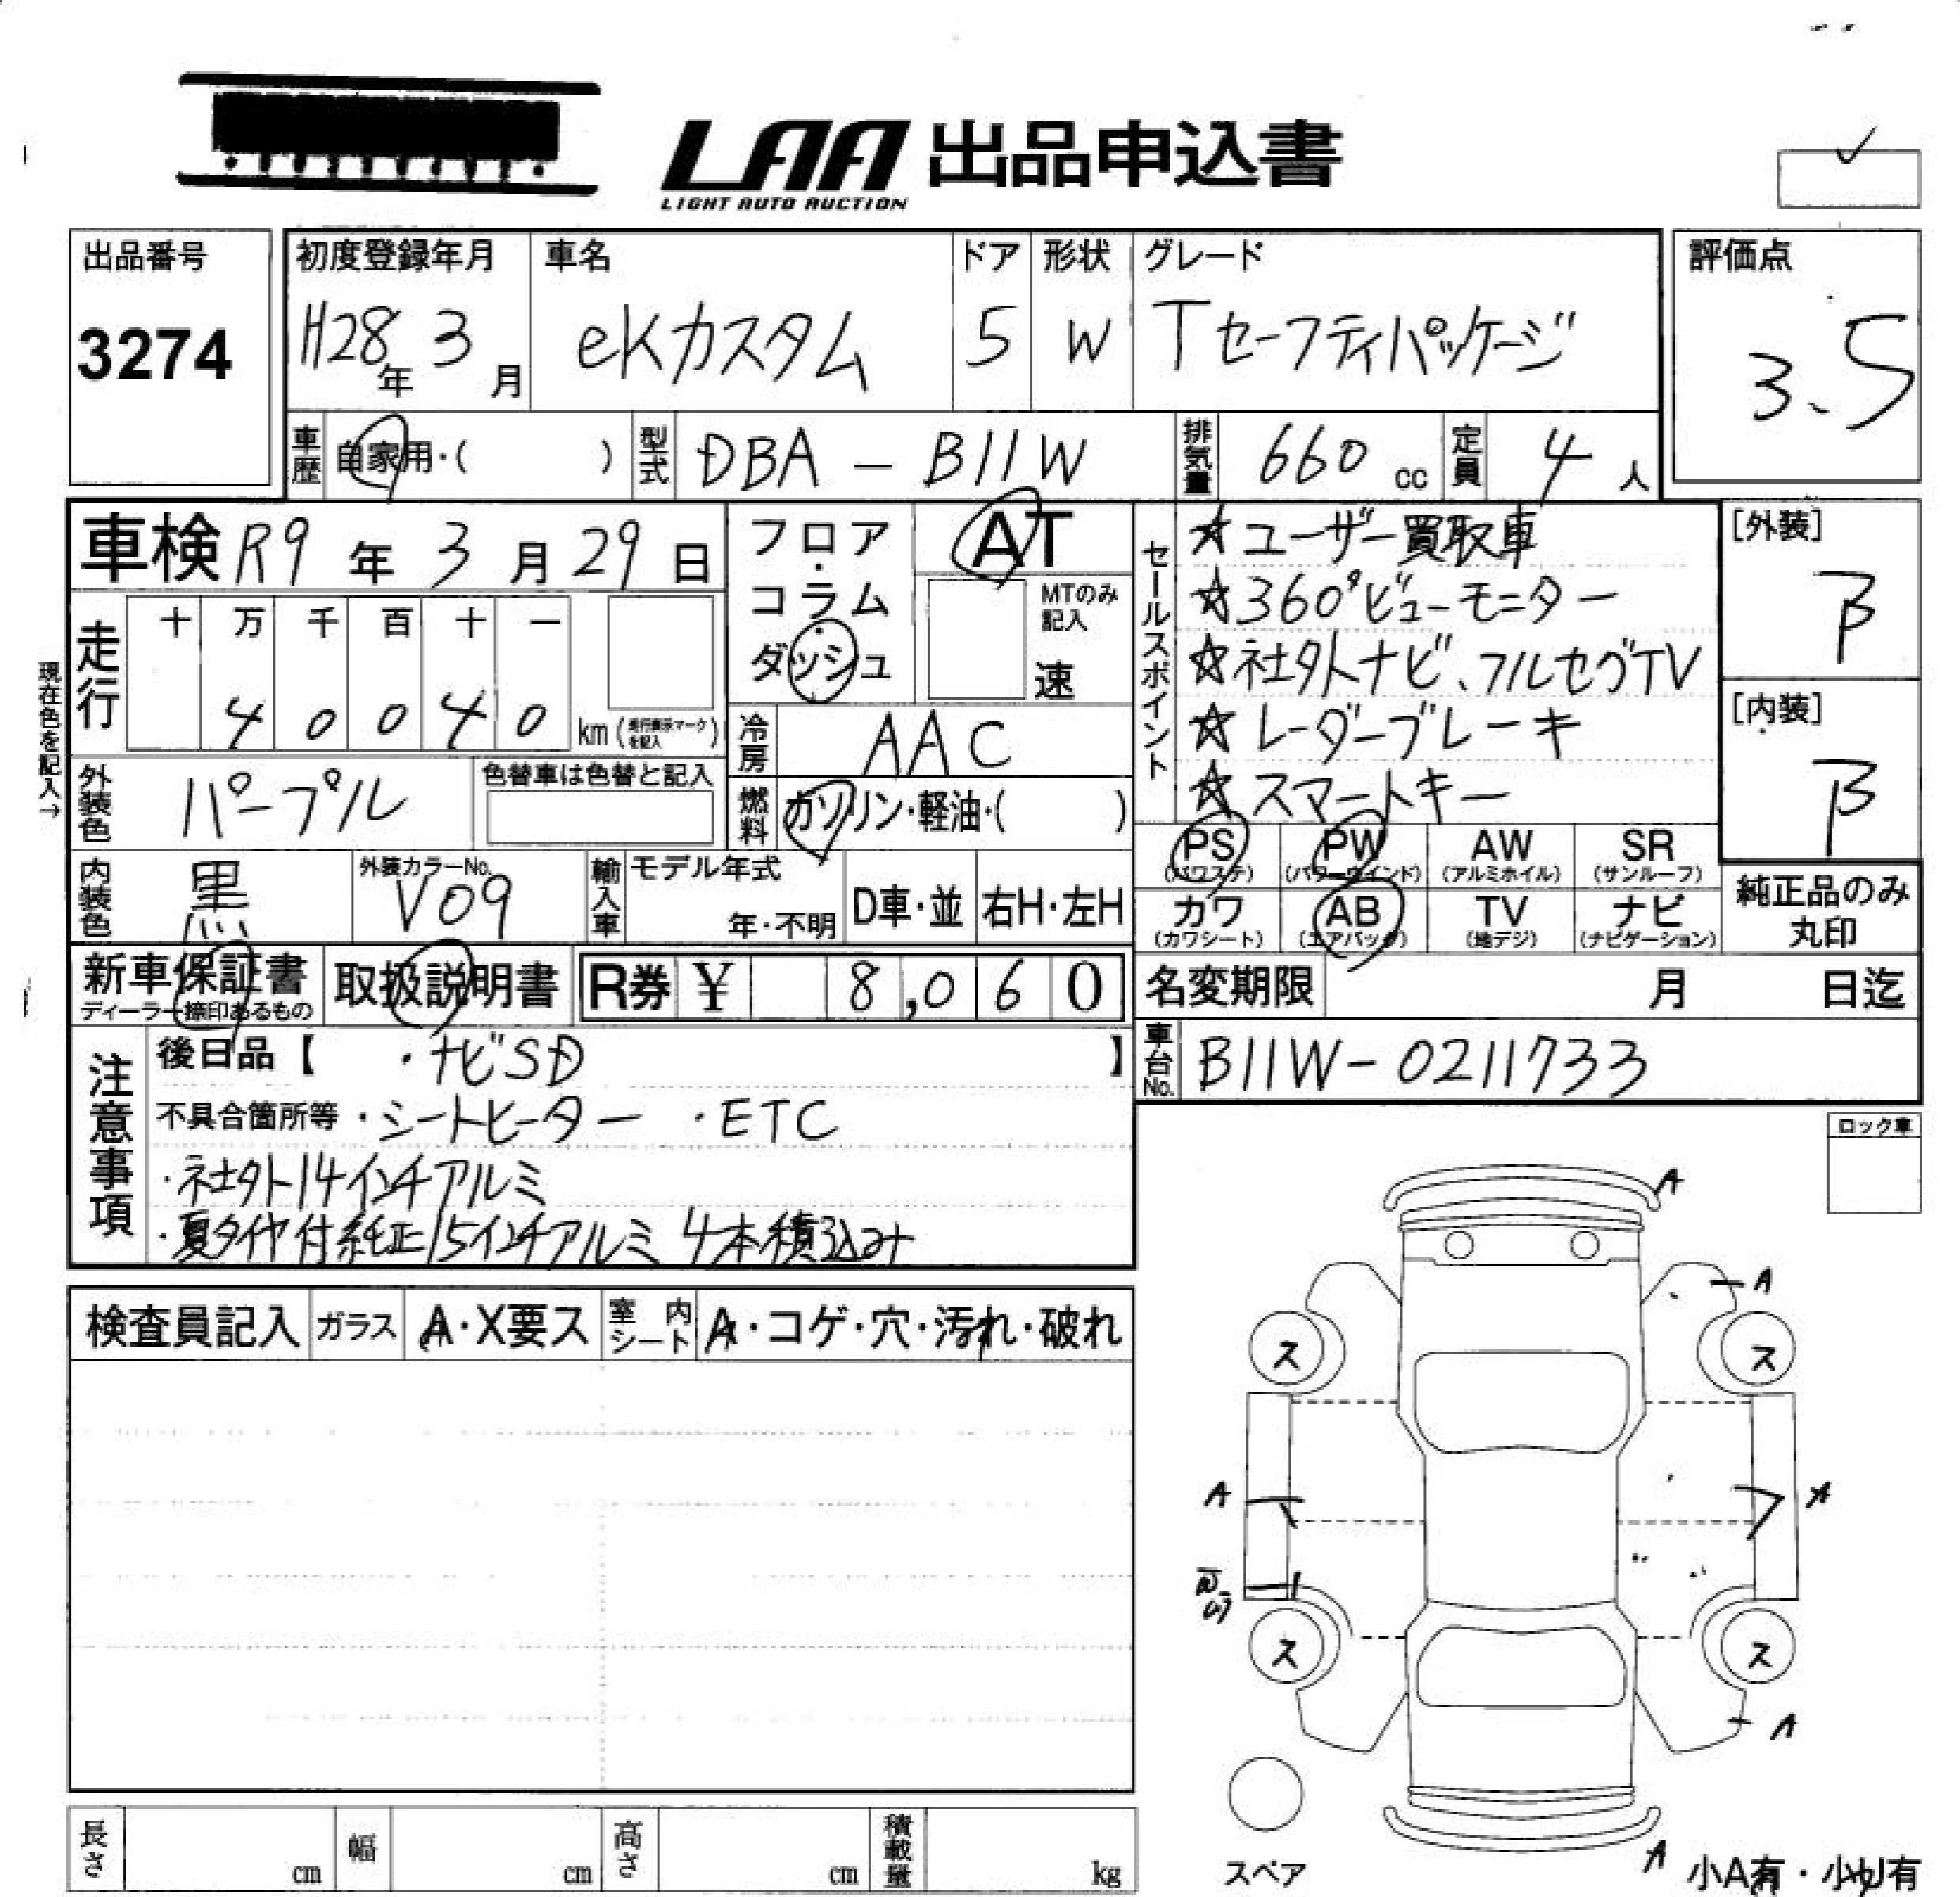 LAA 出品申込書
LIGHT AUTO AUCTION
出品番号
3274
初度登録年月
H28年 3月
車名
eKカスタム
ドア
5
形状
W
グレード
Tセーフティパッケージ
評価点
3.5
車歴 自家用・( )
型式 DBA - B11W
排気量 660 cc
定員 4人
車検 R9年 3月 29日
フロア・コラム・ダッシュ
AT
MTのみ記入
速
現在色を記入→
走行 十 万 千 百 十 一
4 0 0 4 0 km (走行表示マークを記入)
冷房 AAC
外装色 パープル
色替車は色替と記入
燃料 ガソリン・軽油・( )
内装色 黒
外装カラーNo. V09
輸入車 モデル年式 年・不明 D車・並 右H・左H
セールスポイント
☆ユーザー買取車
☆360°ビューモニター
☆社外ナビ、フルセグTV
☆レーダーブレーキ
☆スマートキー
[外装]
B
[内装]
B
PS (パワステ) PW (パワーウインド) AW (アルミホイル) SR (サンルーフ)
カワ (カワシート) AB (エアバック) TV (地デジ) ナビ (ナビゲーション)
純正品のみ丸印
新車保証書 ディーラー捺印あるもの
取扱説明書
R券 ¥ 8,060
名変期限 月 日迄
車台No. B11W-0211733
注意事項
後日品【 ・ナビSD 】
不具合箇所等 ・シートヒーター ・ETC
・社外14インチアルミ
・夏タイヤ付純正15インチアルミ 4本積込み
ロック車
検査員記入 ガラス A・X要ス 室内シート A・コゲ・穴・汚れ・破れ
A
A
ス ス
A A
W
ス ス
A
A
スペア
小A有・小U有
長さ cm 幅 cm 高さ cm 積載量 kg